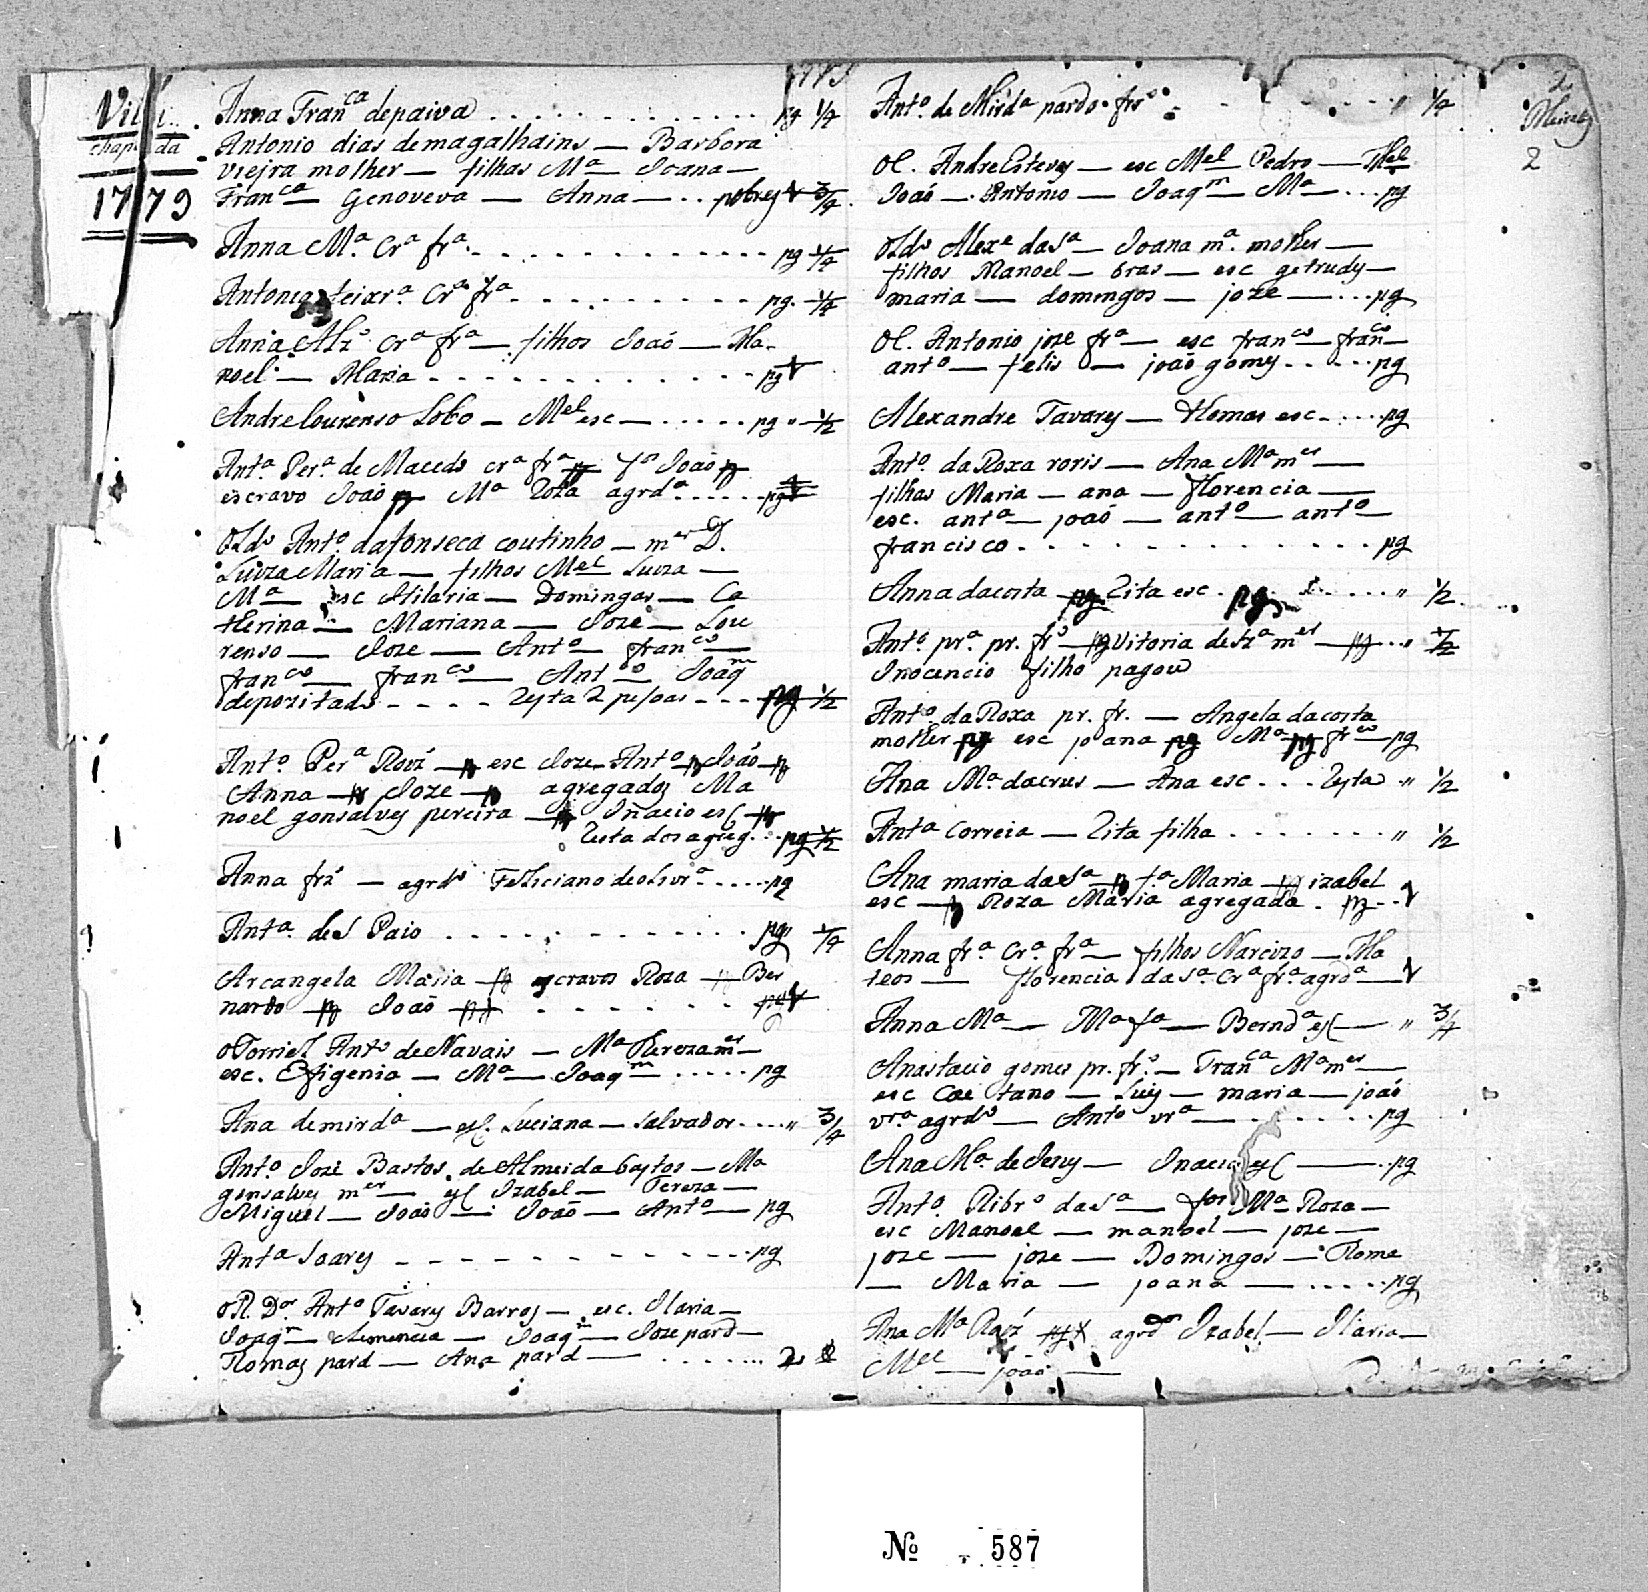 Vil i..
chapada
1779
Anna Franca depaiva . . . . . . . . . . . . . pg 1/4
Antonio dias demagalhains — Barbora
viejra molher — filhas Ma — Joana —
Franca — Genoveva — Anna — . . pobres 3/4
Anna Ma. Cra fra. . . . . . . . . . . . . pg 1/4
Antonia teixra. Cra fra . . . . . . . . . pg. 1/4
Anna Alz Cra fra — filhos Joaõ — Ma-
noel — Maria . . . . . . . . . . . . . pg
Andre Lourenso Lobo — Mel esc — . . . . . pg " 1/2
Anta Pera de Macedo cra fra pg fo Joaõ pg
escravo Joaõ pg Ma Roza agrda . . . . . pg
OLdo Anto. dafonseca coutinho — mer D.
Luiza Maria — filhos Mel Luiza —
Ma — esc Hilaria — Domingas — Ca
therina — Mariana — Joze — Lou
renso — Joze — Anto — franco —
franco — franco — Anto — Joaqm
depozitado . . . . Resta 2 pesoas . . . pg 1/2
Anto. Pera Roiz — pg esc Joze Anto pg Joaõ pg
Anna — pg Joze — pg agregados Ma
noel gonsalves pereira — pg Inacio esc pg
Resta dos agreg. . . pg 1/2
Anna frz — agrdo Feliciano deolivra . . . . . pg
Anta. de S Paio . . . . . . . . . . . . pg 1/4
Arcangela Maria — pg escravos Roza — pg Ber
nardo pg Joaõ pg . . . . . . . pg
OTorriel Anto de Navais — Ma Thereza mer —
esc. Efigenia — Ma — Joaqm — . . . . . pg
Ana demirda — esc. Luciana — Salvador . . . . " 3/4
Anto. Joze Bastos de Almeida bastos — Ma
gonsalves mer — esc Izabel — Tereza —
Miguel — Joaõ — Joaõ — Anto — pg
Anta Soares . . . . . . . . . . . pg
OR. Dor Anto Tavares Barros — esc. Ilaria —
Joaqm — Clemencia — Joaqm — Joze pard —
Thomas pard — Ana pard — . . . . . . .
Anto. de Mirda pardo fro . . . . . . . . " 1/4
Ol. Andre Esteves — esc Mel Pedro — Mel
Joaõ — Antonio — Joaqm — Ma — . . . pg
OLdo Alexe dasa — Joana ma. molher —
filhos Manoel — bras — esc getrudes —
maria — domingos — joze — . . . pg
Ol. Antonio joze fra — esc franco — franco —
anto — felis — joaõ gomes . . . . . pg
Alexandre Tavares — thomas esc . . . . . pg
Anto. da Roxa roris — Ana Ma mer —
filhas Maria — ana — florencia —
esc. anta — joaõ — anto — anto —
francisco . . . . . . . . . . . . . . pg
Anna dacosta — pg Rita esc . . pg . . . . . . " 1/2
Anto. pra. pr. fro — pg Vitoria desza mer — pg . . " 1/2
Inocencio filho pagou
Anto. da Roxa pr. fr. — Angela dacosta
molher pg esc joana pg Ma pg fro — pg
Ana Ma. dacrus — Ana esc . . . Resta " 1/2
Anta Correia — Rita filha . . . . . . . " 1/2
Ana maria dasa — pg fa Maria — pg izabel
esc — pg Roza Maria agregada . pg . .
Anna fra. Cra. fra — filhos Narcizo — Ma
teos — florencia dasa. Cra fra. agrda —
Anna Ma — Ma fa — Bernda esc — " 3/4
Anastacio gomes pr. fro. — Franca Ma mer —
esc Cae tano — Luis — maria — joaõ
vra. agrdo — Anto vra — . . . . . . . pg
Ana Ma. de Jesus — Inacio esc — . . pg
Anto. Ribro dasa — Ma Roza —
esc Manoel — manoel — joze —
joze — joze — Domingos — Thome
— Maria — joana — . . . . . pg
Ana Ma Roiz pg agrdos Izabel — Ilaria —
Mel — joaõ —
2
2
No. 587